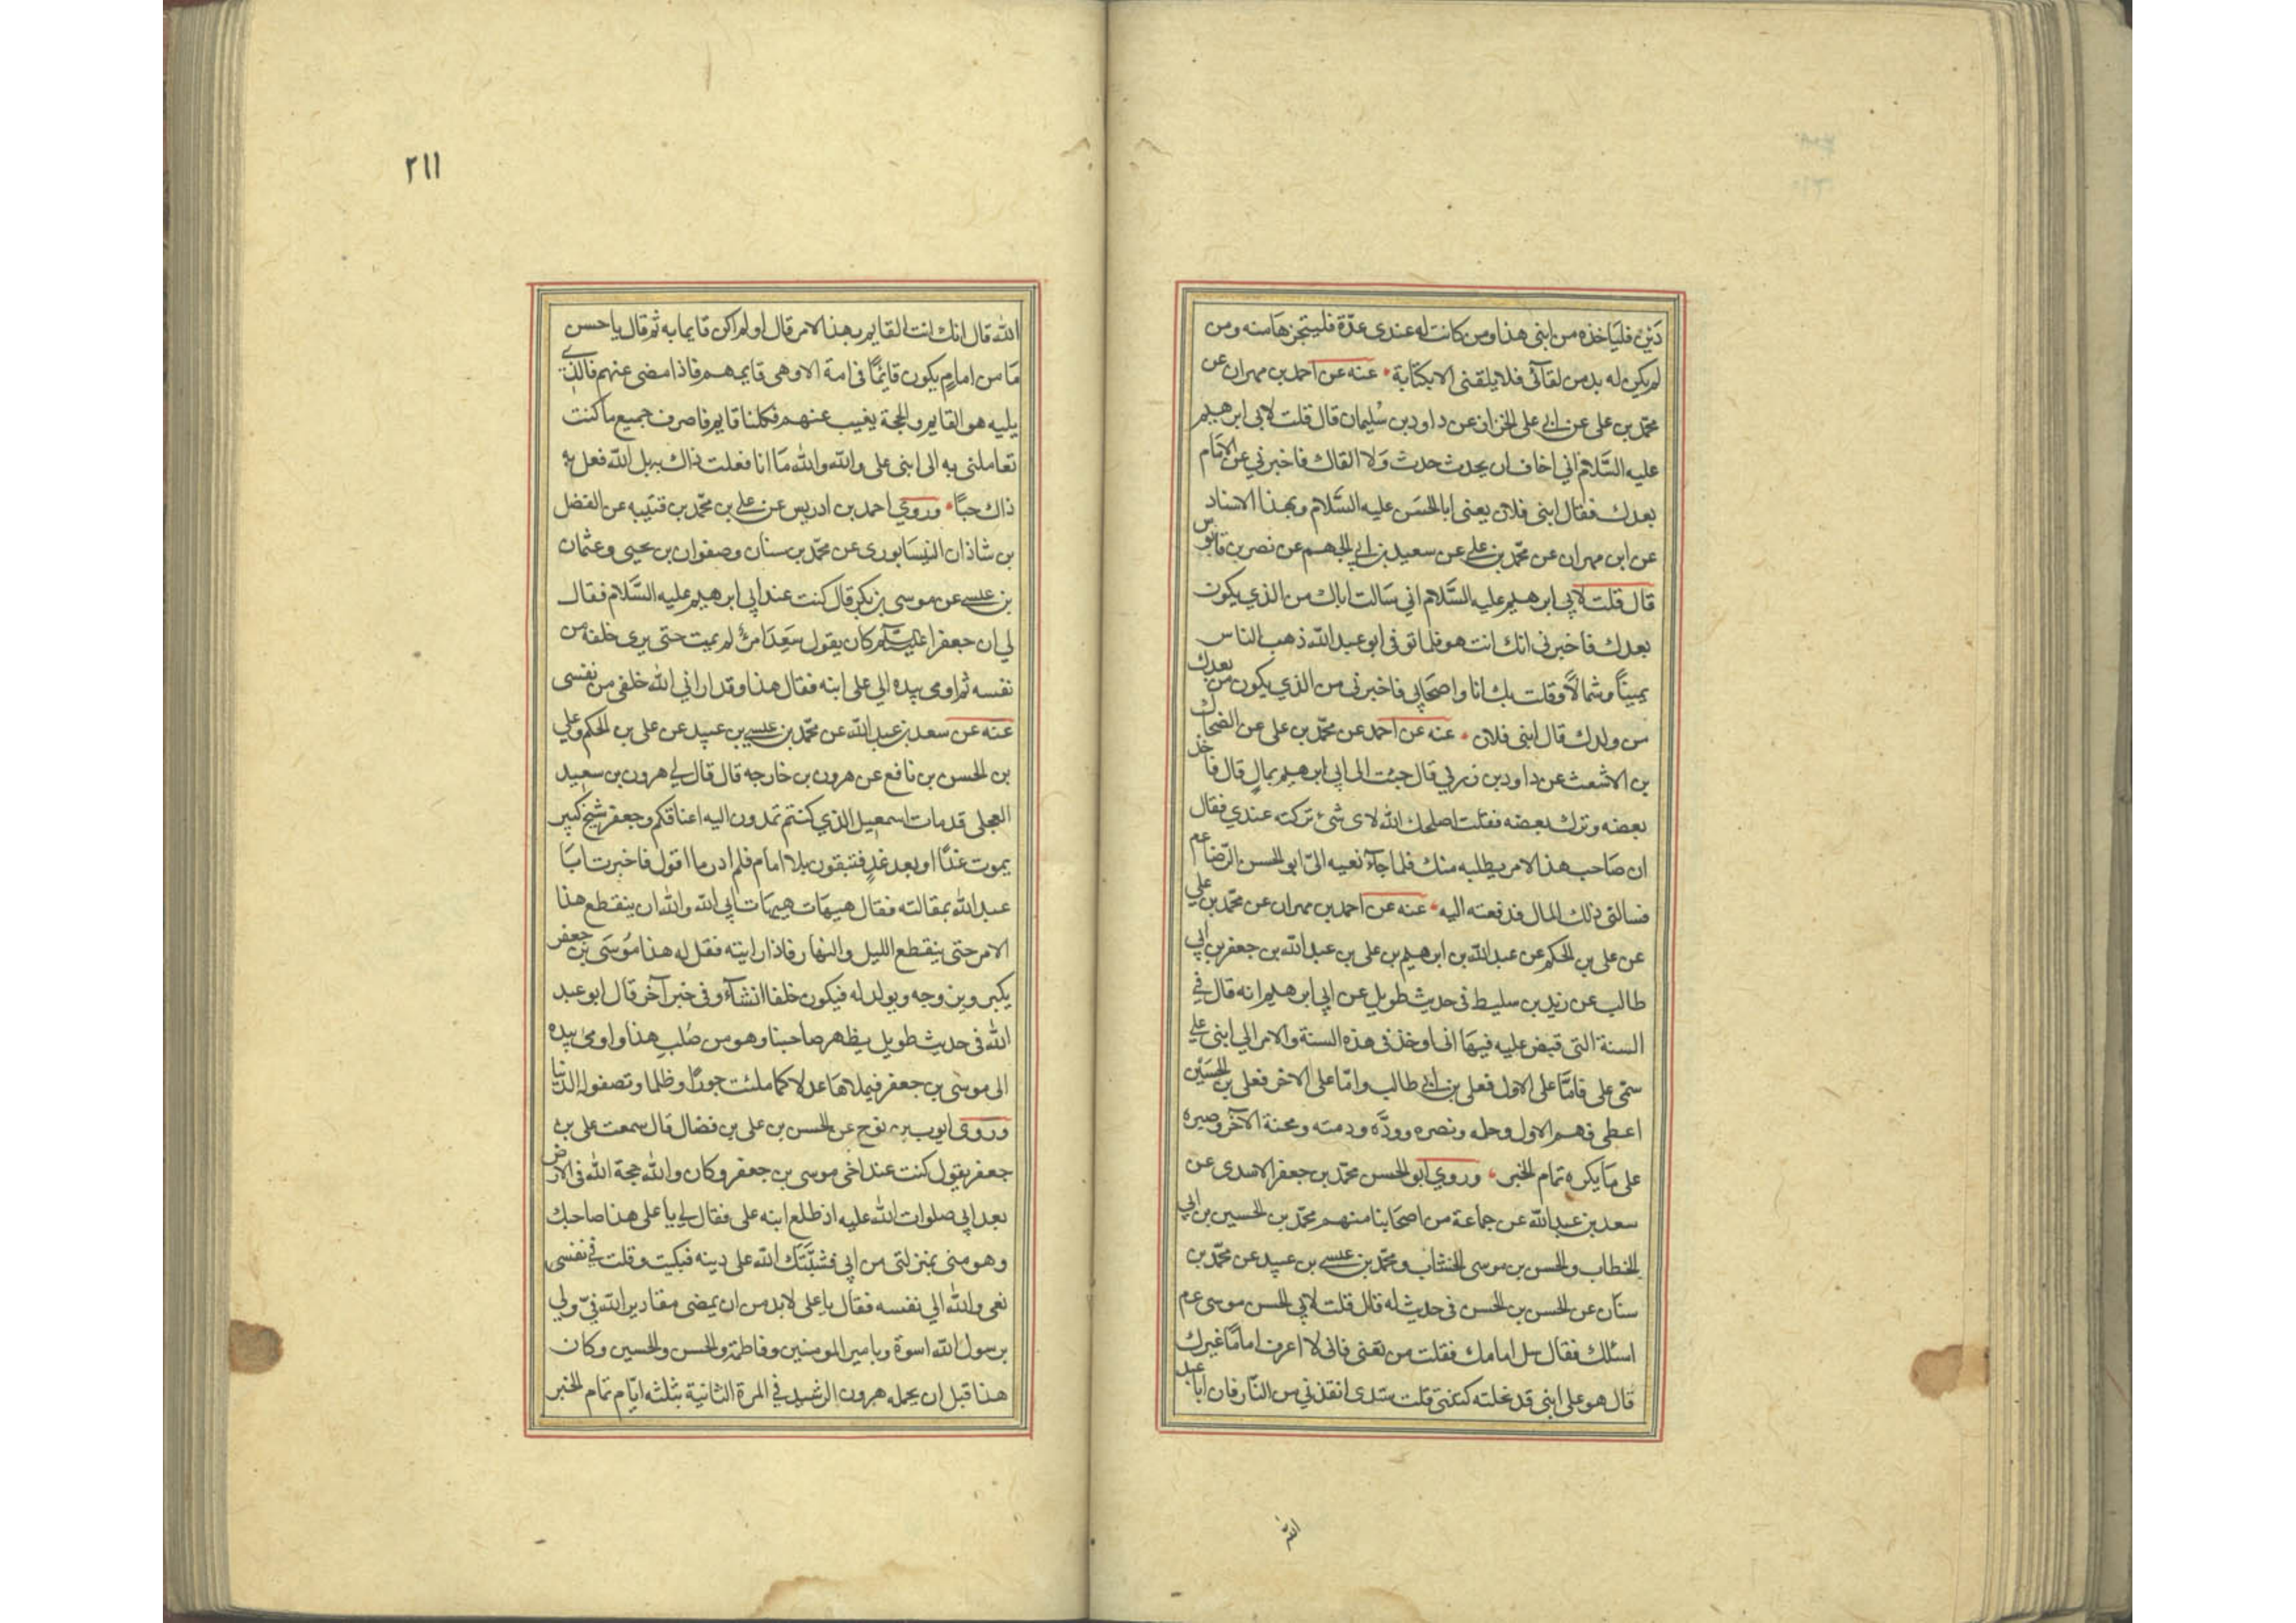 دَيْن فليَاخذه من ابنى هذا ومن كانت له عندى عدّة فليتنجزهَا منه ومن
لم يكن له بد من لقآئى فلا يلقنى الا بكتابة عنه عن احمد بن مهران عن
محمّد بن على عن ابى على الخزاف عن داود بن سُليمان قال قلت لابى ابرهيم
عليه السَّلام اني اخاف ان يحدث حدث وَلا القاك فاخبرني عن الامَام
بعدك فقال ابنى فلان يعنى ابا الحسَن عليه السَّلام وبهذا الاسناد
عن ابن مهران عن محمّد بن على عن سعيد بن ابى الجهم عن نصر بن قابوس
قال قلت لابي ابرهيم عليه السَّلام اني سَالت اباك من الذي يكون
بعدك فاخبرنى انك انت هو فلما توفى ابو عبد الله ذهب الناس
يمينًا وشمالًا وقلت بك انا واصحَابي فاخبرنى من الذي يكون من بعدك
من ولدك قال ابنى فلان عنه عن احمد عن محمّد بن على عن الضحاك
بن الاشعث عن داود بن زربي قال جئت الى ابي ابرهيم بمالٍ قال فاخذ
بعضه وترك بعضه فقلت اصلحك الله لاى شئ تركته عندي فقال
ان صَاحب هذا الامر يطلبه منك فلما جآء نعيه الىّ ابو الحسن الرّضا عم
فسالنى ذلك المال فدفعته اليه عنه عن احمد بن مهران عن محمّد بن علي
عن على بن الحكم عن عبد الله بن ابرهيم بن على بن عبد الله بن جعفر بن ابي
طالب عن زيد بن سليط فى حديث طويل عن ابي ابرهيم انه قال في
السنة التى قبض عليه فيهَا انى اوخذ فى هذه السنة والامر الي ابنى علي
سمّى على فامّا على الاول فعلى بن ابى طالب وامّا على الاخر فعلى بن الحسَيْن
اعطى فهم الاول وحله ونصره وودَّه وذمته ومحنة الآخر وصبره
على مَا يكره تمام الخبر وروي ابو الحسن محمّد بن جعفر الاسدى عن
سعد بن عبد الله عن جماعة من اصحَابنا منهم محمّد بن الحسين بن ابي
الخطاب والحسن بن موسى الخشاب ومحمّد بن عيسى بن عبيد عن محمّد بن
سنان عن الحسن بن الحسن فى حديث له قال قلت لابي الحسن موسى عم
اسئلك فقال سل امامك فقلت من تعنى فانى لا اعرف امامًا غيرك
قال هو على ابنى قد نحلته كنيتى قلت سيّدى انقذني من النّار فان ابا عبد
الله
٢١١
الله قال انك انت القايم بهذا الامر قال اولم اكن قايما به ثم قال يا حسن
مَا من امامٍ يكون قائمًا فى امة الا وهى قايمهم فاذا مضى عنهم فالذي
يليه هو القايم والحجة يغيب عنهم فكلنا قايم فاصرف جميع ما كنت
تعاملنى به الى ابنى على والله والله مَا انا فعلت ذاك به بل الله فعل به
ذاك حبًا وروي احمد بن ادريس عن على بن محمّد بن قتيبه عن الفضل
بن شاذان النيسَابورى عن محمّد بن سنان وصفوان بن يحيى وعثمان
بن عيسى عن موسى بن بكر قال كنت عند ابي ابرهيم عليه السَّلام فقال
لي ان جعفرا عليه السلم كان يقول سَعِدَ امرؤ لم يمت حتى يرى خلفه من
نفسه ثم اومى بيده الي على ابنه فقال هذا وقد اراني الله خلفى من نفسى
عنه عن سعد بن عبد الله عن محمّد بن عيسى بن عبيد عن على بن الحكم وعلي
بن الحسن بن نافع عن هرون بن خارجه قال قال لي هرون بن سعيد
العجلى قد مات اسمعيل الذي كنتم تمدون اليه اعناقكم وجعفر شيخ كبير
يموت غدًا او بعد غدٍ فتبقون بلا امام فلم ادر ما اقول فاخبرت ابَا
عبد الله بمقالته فقال هيهَات هيهَات ابي الله والله ان ينقطع هذا
الامر حتى ينقطع الليل والنهار فاذا رايته فقل له هذا مُوسَى بن جعفر
يكبر ويزوجه ويولد له فيكون خلفا انشآء وفى خبر آخر قال ابو عبد
الله فى حديث طويل يظهر صاحبنا وهو من صُلبِ هذا واومى بيده
الى موسى بن جعفر فيملاهَا عدلا كما ملئت جورًا وظلما وتصفوا له الدّنيا
وروى ايوب بن نوح عن الحسن بن على بن فضال قال سمعت على بن
جعفر يقول كنت عند اخى موسى بن جعفر وكان والله حجة الله فى الارض
بعد ابي صلوات الله عليه اذ طلع ابنه على فقال لي يا على هذا صاحبك
وهو منى بمنزلتى من ابي فثبّتَك الله على دينه فبكيت وقلت في نفسى
نعى والله الي نفسه فقال يا على لا بد من ان يمضى مقادير الله فيّ ولي
برسول الله اسوة وبامير المومنين وفاطمة والحسن والحسين وكان
هذا قبل ان يحمله هرون الرشيد في المرة الثانية بثلثه ايّام تمام الخبر